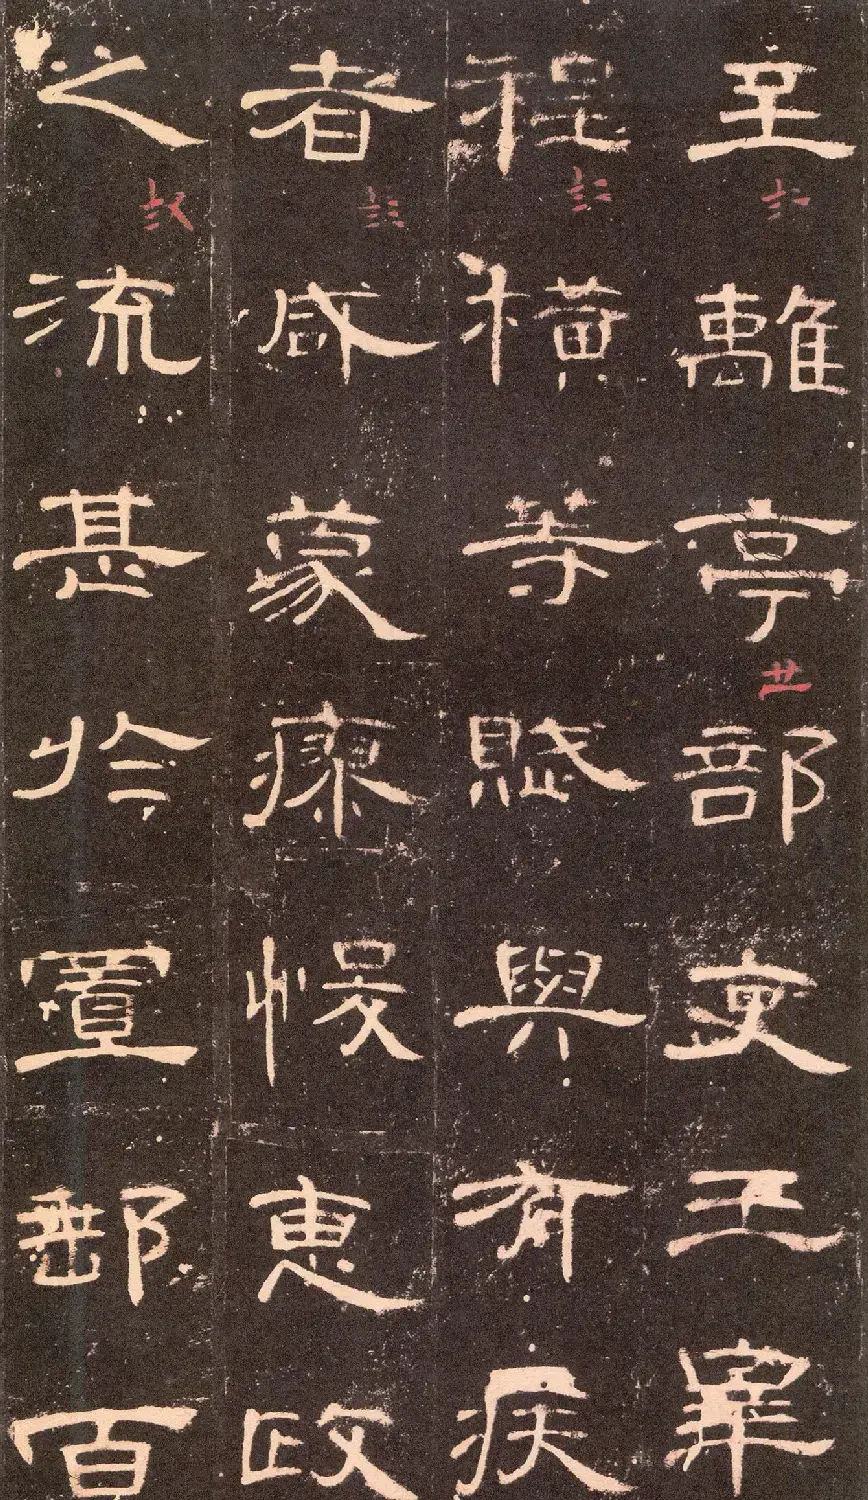 至離亭部吏王宰
程橫等賦與有疾
者咸蒙瘳悛惠政
之流甚於置郵百